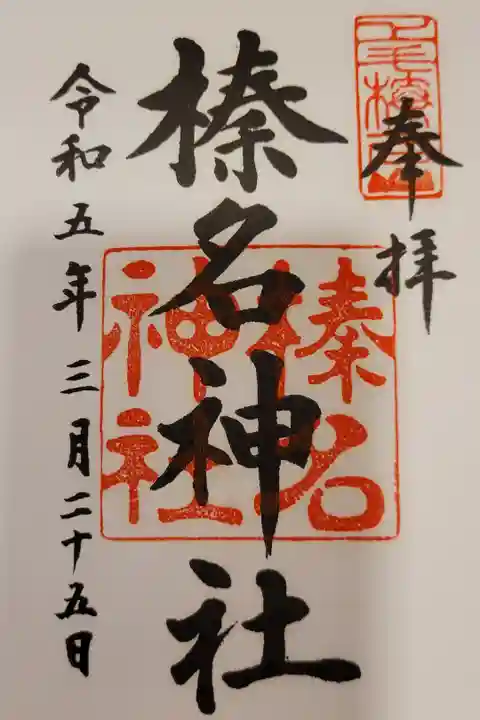 奉拝
榛名神社
榛名
神社
令和五年三月二十五日